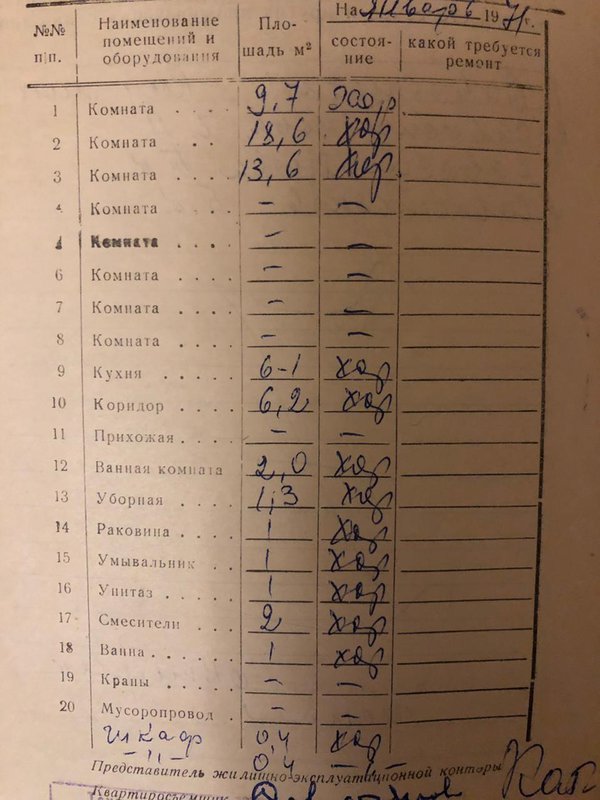 На январь 1971 г.
№№ п/п. Наименование помещений и оборудования Площадь м² состояние какой требуется ремонт
1 Комната . . . . 9,7 хор
2 Комната . . 18,6 хор
3 Комната . . . . 13,6 хор
4 Комната . . . . – –
Комната . . . . – –
6 Комната . . . . – –
7 Комната . . . . – –
8 Комната . . . . – –
9 Кухня . . . . . 6-1 хор
10 Коридор . . . . 6,2 хор
11 Прихожая . . . . – –
12 Ванная комната 2,0 хор
13 Уборная . . . . 1,3 хор
14 Раковина . . . . 1 хор
15 Умывальник . . 1 хор
16 Унитаз . . . . 1 хор
17 Смесители . . . 2 хор
18 Ванна . . . . . . 1 хор
19 Краны . . . . . . – –
20 Мусоропровод . – –
шкаф 0,4 хор
–"– 0,4 –"–
Представитель жилищно-эксплуатационной конторы
Квартиросъемщик